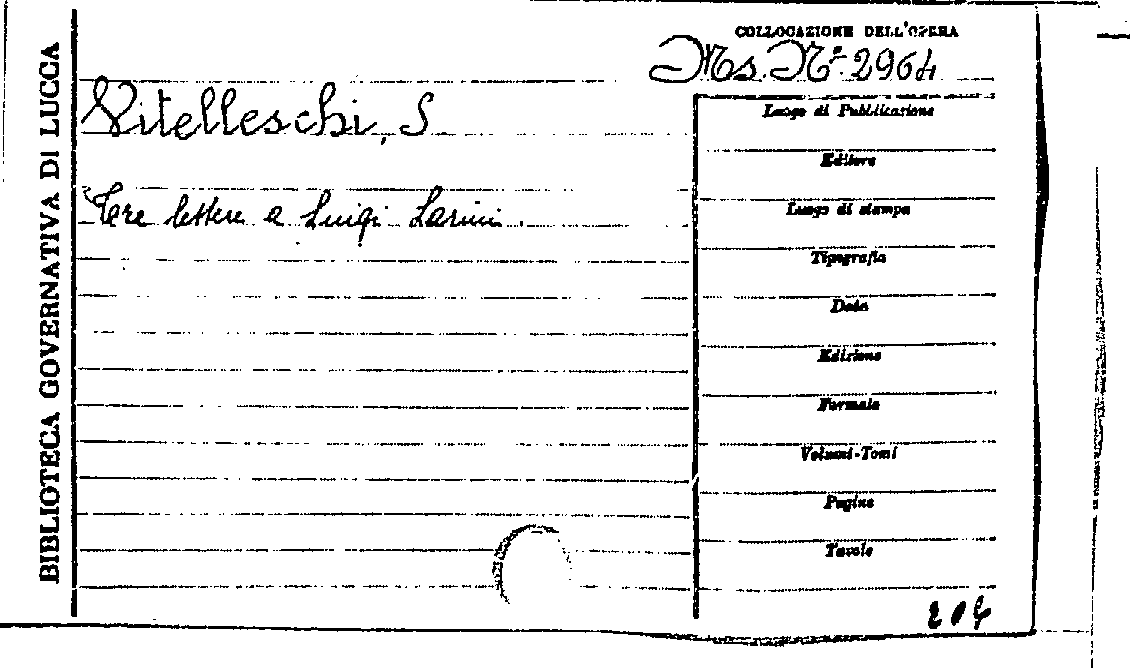 BIBLIOTECA GOVERNATIVA DI LUCCA
COLLOCAZIONE DELL'OPERA
Ms. Nº 2964
Vitelleschi, S
Tre lettere a Luigi
Luogo di Pubblicazione
Editore
Luogo di stampa
Tipografia
Data
Edizione
Formato
Volumi-Tomi
Pagine
Tavole
204